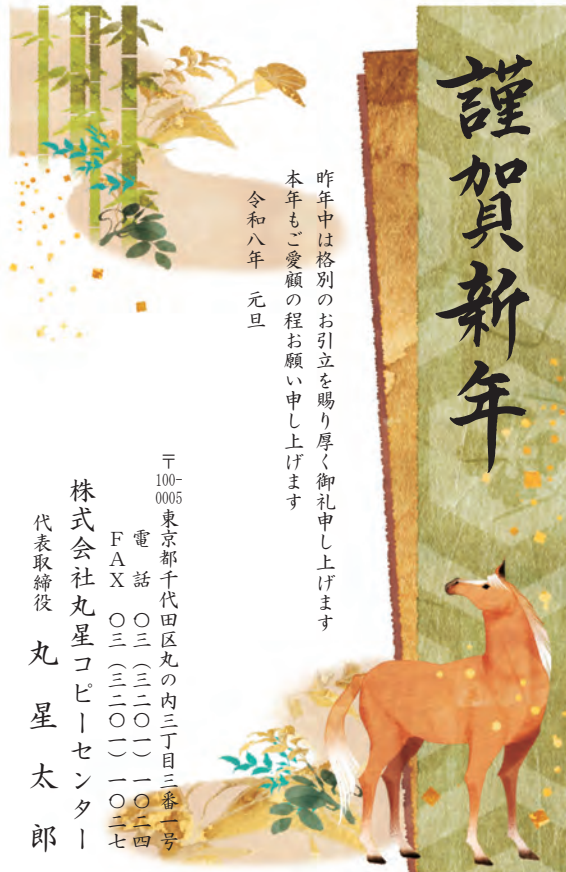 謹賀新年
昨年中は格別のお引立を賜り厚く御礼申し上げます
本年もご愛顧の程お願い申し上げます
令和八年　元旦
〒100-0005東京都千代田区丸の内三丁目三番一号
電話　〇三（三二〇一）一〇二四
ＦＡＸ　〇三（三二〇一）一〇二七
株式会社丸星コピーセンター
代表取締役　丸星太郎